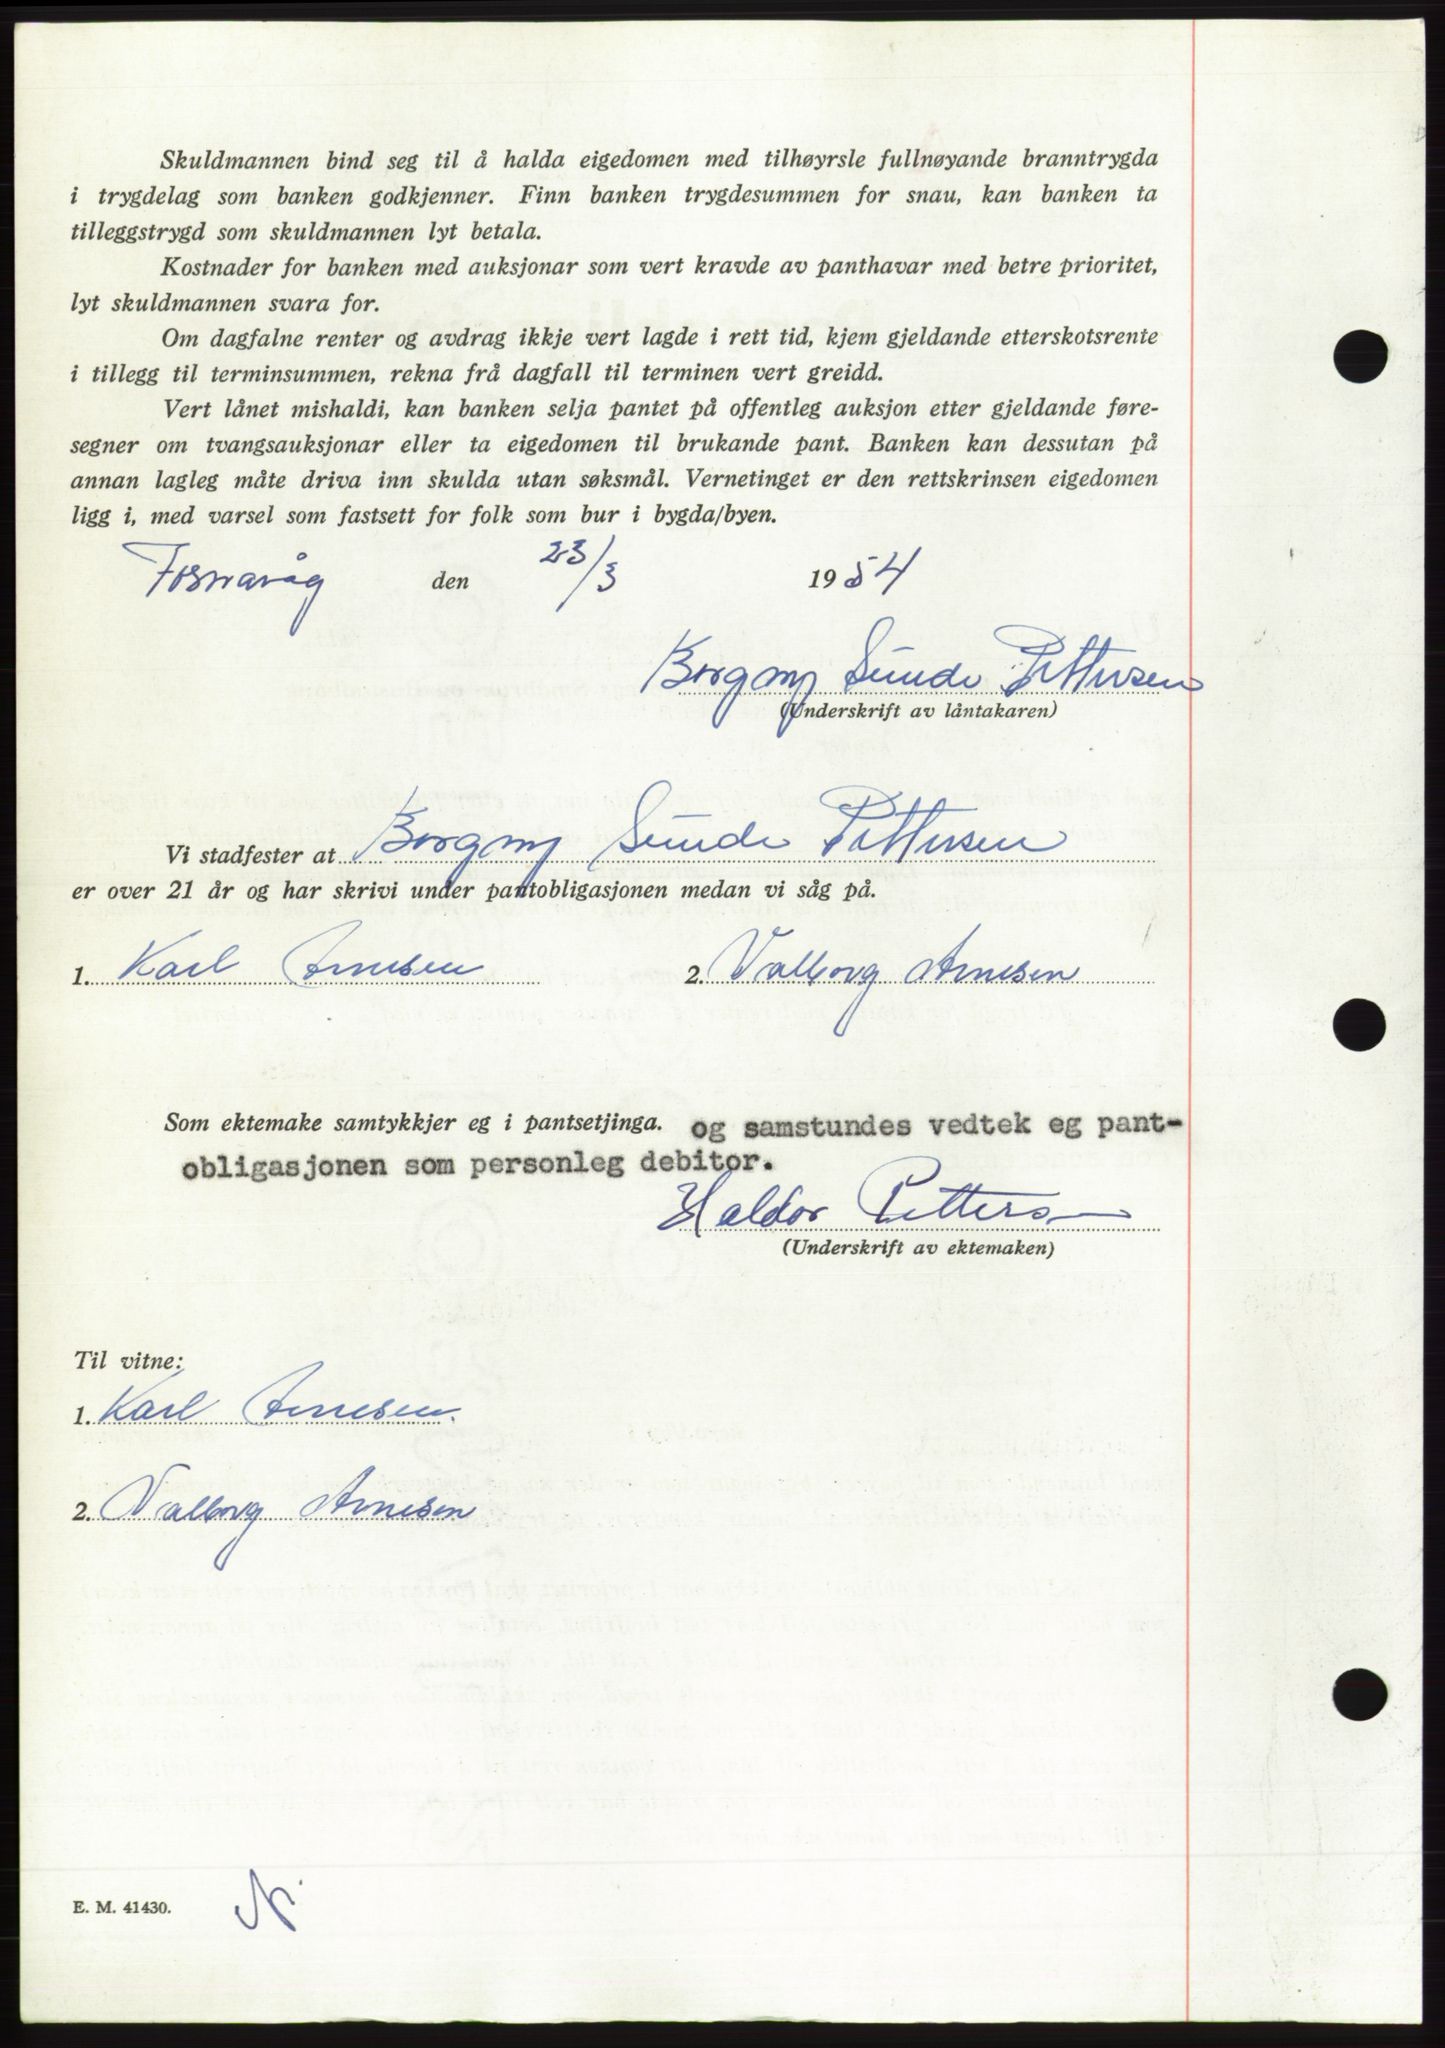 Skuldmannen bind seg til å halda eigedomen med tilhøyrsle fullnøyande branntrygda
i trygdelag som banken godkjenner. Finn banken trygdesummen for snau, kan banken ta
tilleggstrygd som skuldmannen lyt betala.
Kostnader for banken med auksjonar som vert kravde av panthavar med betre prioritet,
lyt skuldmannen svara for.
Om dagfalne renter og avdrag ikkje vert lagde i rett tid, kjem gjeldande etterskotsrente
i tillegg til terminsummen, rekna frå dagfall til terminen vert greidd.
Vert lånet mishaldi, kan banken selja pantet på offentleg auksjon etter gjeldande føre-
segner om tvangsauksjonar eller ta eigedomen til brukande pant. Banken kan dessutan på
annan lagleg måte driva inn skulda utan søksmål. Vernetinget er den rettskrinsen eigedomen
ligg i, med varsel som fastsett for folk som bur i bygda/byen.
Fosnavåg den 23/3 1954
Borgny Sunde Pettersen
(Underskrift av låntakaren)
Vi stadfester at Borgny Sunde Pettersen
er over 21 år og har skrivi under pantobligasjonen medan vi såg på.
1. Karl Arnesen 2. Valborg Arnesen
Som ektemake samtykkjer eg i pantsetjinga. og samstundes vedtek eg pant-
obligasjonen som personleg debitor.
Haldor Petters
(Underskrift av ektemaken)
Til vitne:
1. Karl Arnesen.
2. Valborg Arnesen
E. M. 41430.